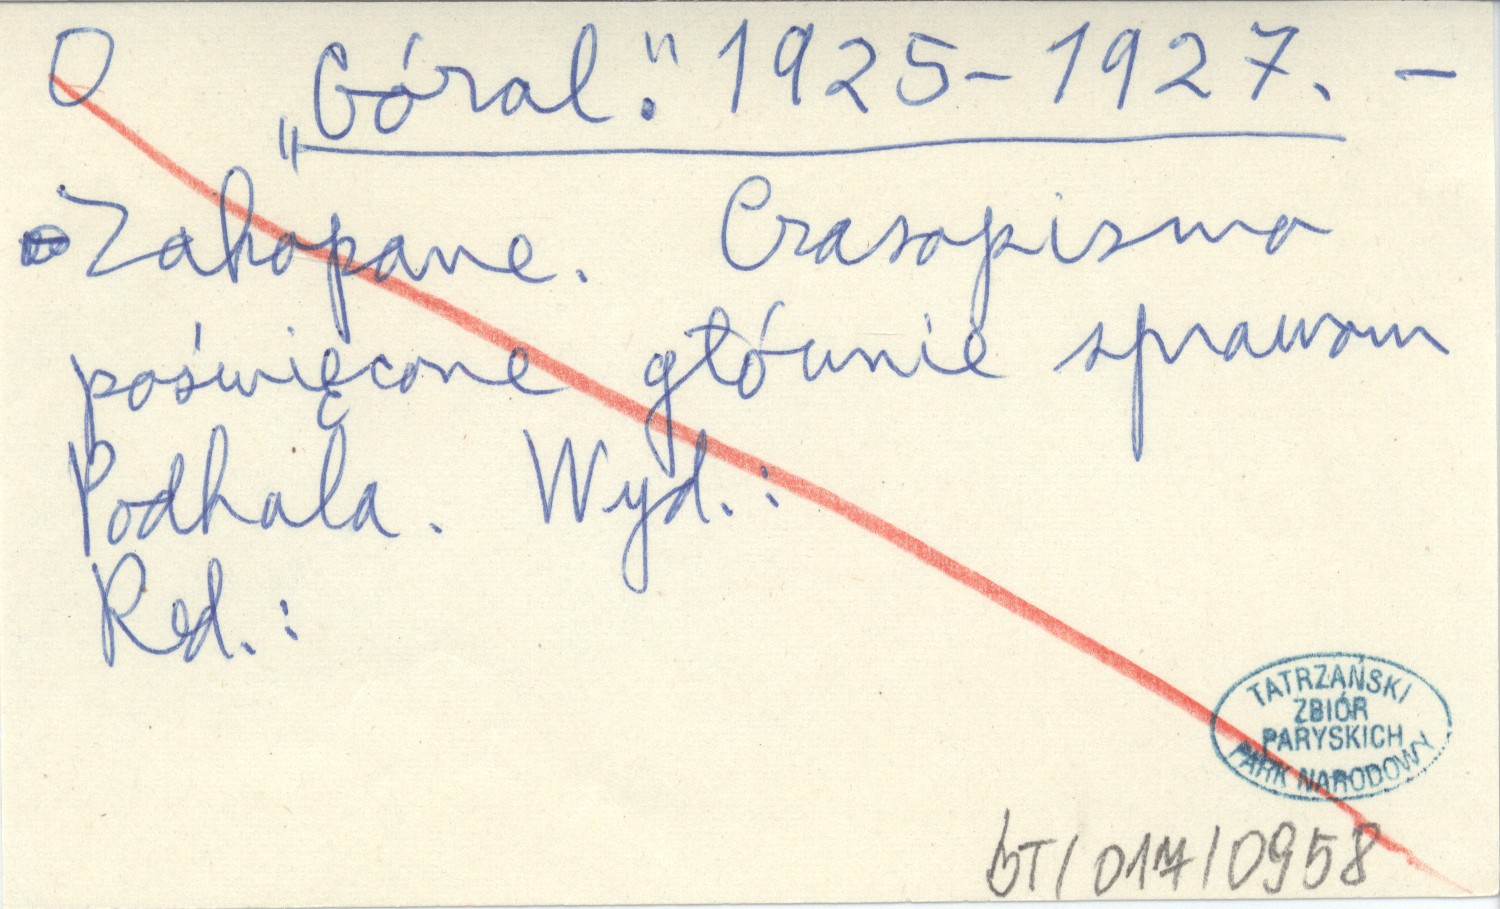 O „Góral." 1925-1927. -
Zakopane. Czasopismo
poświęcone głównie sprawom
Podhala. Wyd.:
Red.:
TATRZAŃSKI
ZBIÓR
PARYSKICH
PARK NARODOWY
bT/017/0958